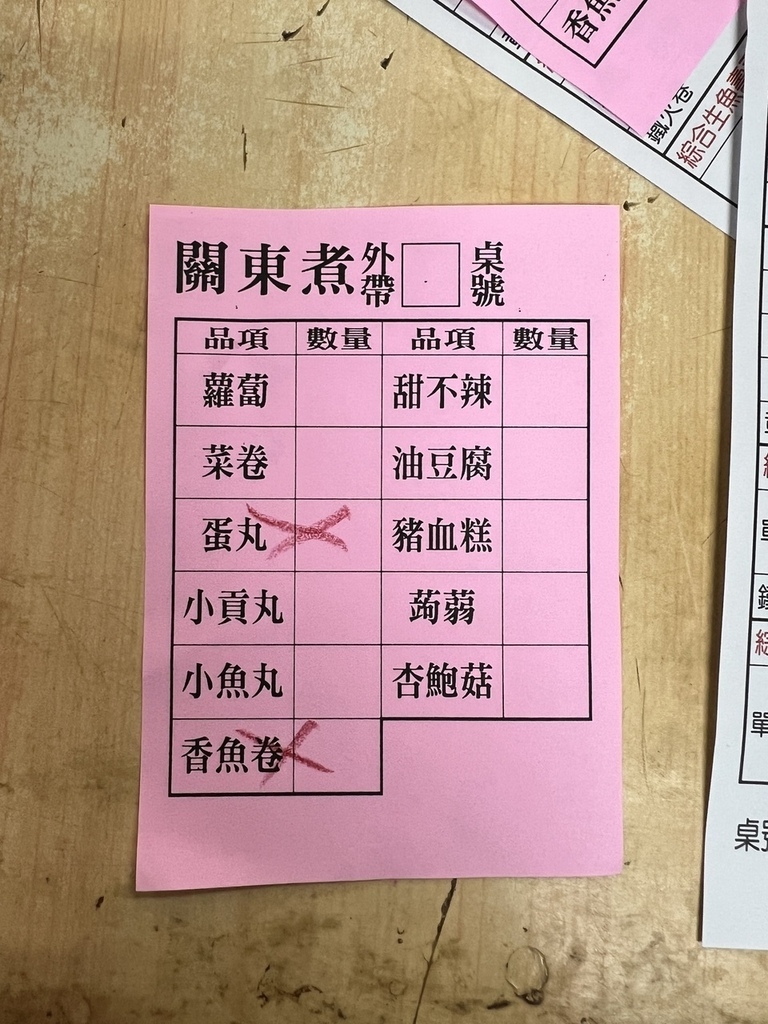 香魚
蠘火卷
綜合生魚
關東煮 外帶 桌號
品項 數量 品項 數量
蘿蔔 甜不辣
菜卷 油豆腐
蛋丸 豬血糕
小貢丸 蒟蒻
小魚丸 杏鮑菇
香魚卷
單
桌號